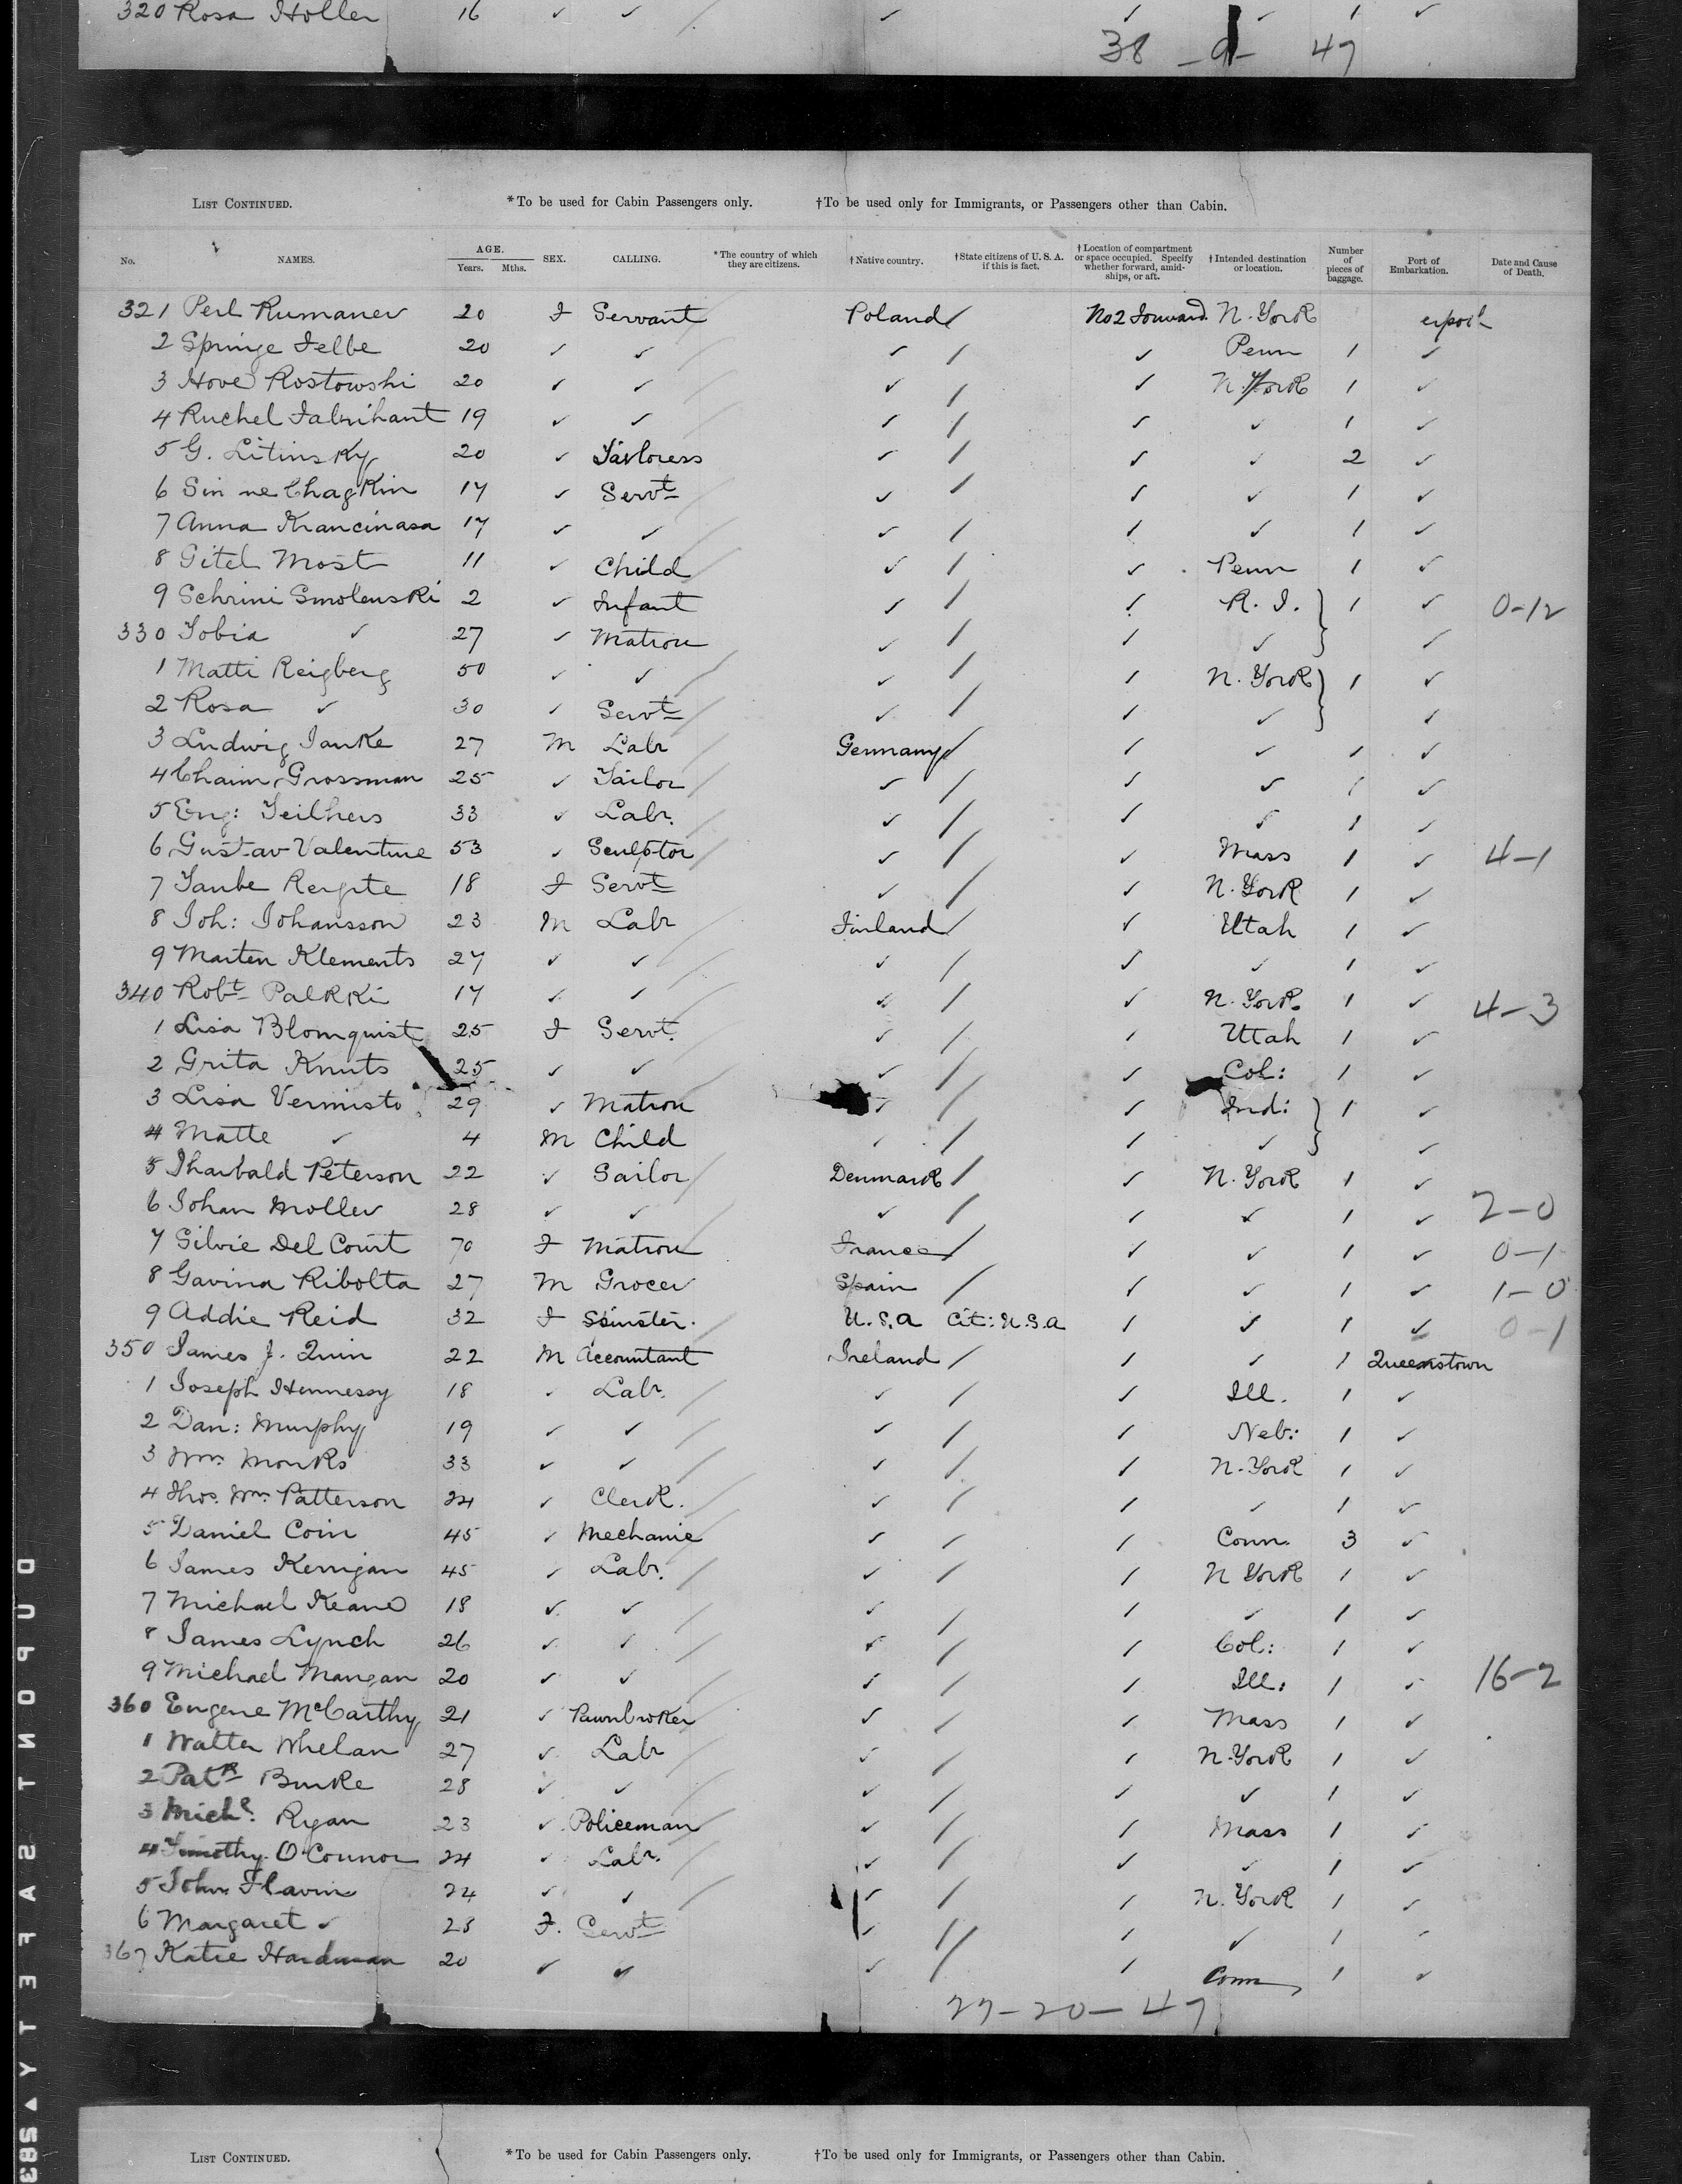 320 Rosa Holler 16 ✓ ✓ / ✓ ✓ ✓ 1 ✓
38 - 9 - 47
LIST CONTINUED. *To be used for Cabin Passengers only. †To be used only for Immigrants, or Passengers other than Cabin.
No. NAMES. AGE. Years. Mths. SEX. CALLING. *The country of which they are citizens. †Native country. †State citizens of U. S. A. if this is fact. †Location of compartment or space occupied. Specify whether forward, amidships, or aft. †Intended destination or location. Number of pieces of baggage. Port of Embarkation. Date and Cause of Death.
321 Perl Rumaner 20 F Servant Poland / No 2 Forward. N. York erpool
2 Springe Felbe 20 ✓ ✓ ✓ / ✓ Penn 1 ✓
3 Hove Rostowski 20 ✓ ✓ ✓ / ✓ N. York 1 ✓
4 Ruchel Fabrikant 19 ✓ ✓ ✓ / ✓ ✓ 1 ✓
5 G. Litinsky 20 ✓ Tailoress ✓ / ✓ ✓ 2 ✓
6 Sin ne Chagkin 17 ✓ Servt ✓ / ✓ ✓ 1 ✓
7 Anna Krancinasa 17 ✓ ✓ ✓ / ✓ ✓ 1 ✓
8 Gitel Most 11 ✓ Child ✓ / ✓ Penn 1 ✓
9 Schrini Smolenski 2 ✓ Infant ✓ / ✓ R. I. } 1 ✓ 0-12
330 Tobia ✓ 27 ✓ Matron ✓ / ✓ ✓ ✓
1 Matti Reigberg 50 ✓ ✓ ✓ / ✓ N. York } 1 ✓
2 Rosa ✓ 30 ✓ Servt ✓ / ✓ ✓ ✓
3 Ludwig Janke 27 M Labr Germany / ✓ ✓ 1 ✓
4 Chaim Grossman 25 ✓ Tailor ✓ / ✓ ✓ 1 ✓
5 Eng: Teilhers 33 ✓ Labr. ✓ / ✓ ✓ 1 ✓
6 Gustav Valentine 53 ✓ Sculptor ✓ / ✓ Mass 1 ✓ 4-1
7 Taube Rergste 18 F Servt ✓ / ✓ N. York 1 ✓
8 Joh: Johansson 23 M Labr Finland / ✓ Utah 1 ✓
9 Marten Klements 27 ✓ ✓ ✓ / ✓ ✓ 1 ✓
340 Robt Palkki 17 ✓ ✓ ✓ / ✓ N. York 1 ✓ 4-3
1 Lisa Blomquist 25 F Servt. ✓ / ✓ Utah 1 ✓
2 Grita Knuts 25 ✓ ✓ ✓ / ✓ Col: 1 ✓
3 Lisa Vermisto 29 ✓ Matron ✓ / ✓ Ind: } 1 ✓
4 Matte ✓ 4 M Child ✓ / ✓ ✓ ✓
5 Tharbald Peterson 22 ✓ Sailor Denmark / ✓ N. York 1 ✓
6 Johan Moller 28 ✓ ✓ ✓ / ✓ ✓ 1 ✓ 2-0
7 Silvie Del Court 70 F Matron France / ✓ ✓ 1 ✓ 0-1
8 Gavina Ribolta 27 M Grocer Spain / ✓ ✓ 1 ✓ 1-0
9 Addie Reid 32 F Spinster. U.S.A Cit: U.S.A ✓ ✓ 1 ✓ 0-1
350 James J. Quin 22 M Accountant Ireland / ✓ ✓ 1 Queenstown
1 Joseph Hennessy 18 ✓ Labr. ✓ / ✓ Ill. 1 ✓
2 Dan: Murphy 19 ✓ ✓ ✓ / ✓ Neb: 1 ✓
3 Wm. Monks 33 ✓ ✓ ✓ / ✓ N. York 1 ✓
4 Thos. Wm. Patterson 24 ✓ Clerk. ✓ / ✓ ✓ 1 ✓
5 Daniel Coin 45 ✓ Mechanic ✓ / ✓ Conn. 3 ✓
6 James Kerrigan 45 ✓ Labr. ✓ / ✓ N York 1 ✓
7 Michael Keane 18 ✓ ✓ ✓ / ✓ ✓ 1 ✓
8 James Lynch 26 ✓ ✓ ✓ / ✓ Col: 1 ✓
9 Michael Mangan 20 ✓ ✓ ✓ / ✓ Ill. 1 ✓ 16-2
360 Eugene McCarthy 21 ✓ Pawnbroker ✓ / ✓ Mass 1 ✓
1 Walter Whelan 27 ✓ Labr ✓ / ✓ N. York 1 ✓
2 Patk Burke 28 ✓ ✓ ✓ / ✓ ✓ 1 ✓
3 Michl. Ryan 23 ✓ Policeman ✓ / ✓ Mass 1 ✓
4 Timothy O'Connor 24 ✓ Labr. ✓ / ✓ ✓ 1 ✓
5 John Flavin 24 ✓ ✓ ✓ / ✓ N. York 1 ✓
6 Margaret ✓ 28 F. Servt ✓ / ✓ ✓ 1 ✓
367 Katie Hardman 20 ✓ ✓ ✓ / ✓ Conn 1 ✓
27-20-47
LIST CONTINUED. *To be used for Cabin Passengers only. †To be used only for Immigrants, or Passengers other than Cabin.
DUPONT SAFETY